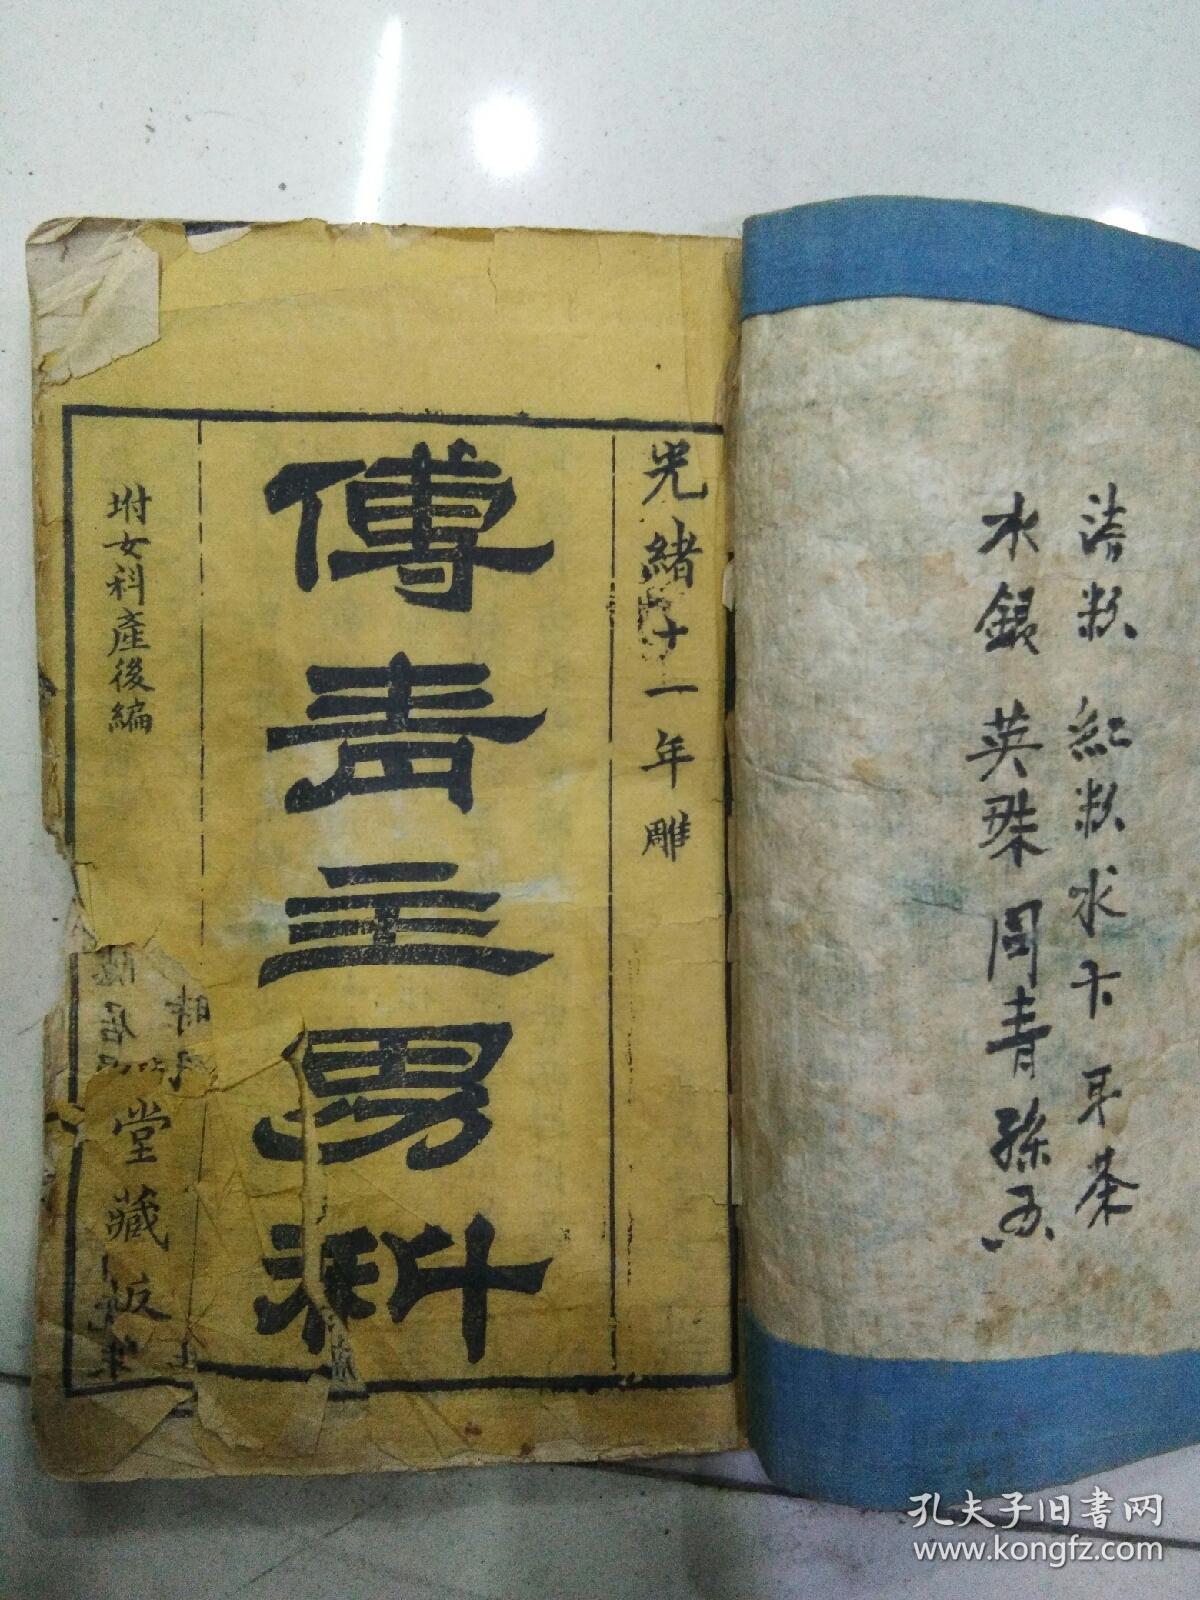 清粉 紅粉 冰片 耳茶
水銀 英珠 同青
光緒十一年雕
傅青主男科
坿女科產後編
堂藏板
孔夫子旧书网
www.kongfz.com